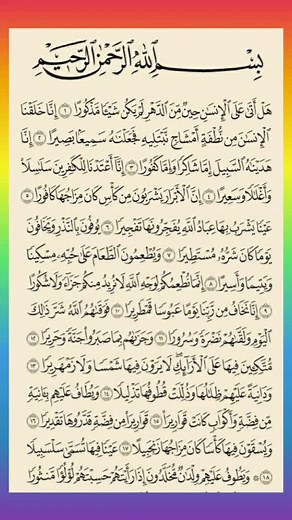 بِسْمِ ٱللَّهِ ٱلرَّحْمَٰنِ ٱلرَّحِيمِ
هَلْ أَتَىٰ عَلَى ٱلْإِنسَٰنِ حِينٌ مِّنَ ٱلدَّهْرِ لَمْ يَكُن شَيْـًٔا مَّذْكُورًا ١ إِنَّا خَلَقْنَا
ٱلْإِنسَٰنَ مِن نُّطْفَةٍ أَمْشَاجٍ نَّبْتَلِيهِ فَجَعَلْنَٰهُ سَمِيعًۢا بَصِيرًا ٢ إِنَّا
هَدَيْنَٰهُ ٱلسَّبِيلَ إِمَّا شَاكِرًا وَإِمَّا كَفُورًا ٣ إِنَّآ أَعْتَدْنَا لِلْكَٰفِرِينَ سَلَٰسِلَا۟
وَأَغْلَٰلًا وَسَعِيرًا ٤ إِنَّ ٱلْأَبْرَارَ يَشْرَبُونَ مِن كَأْسٍ كَانَ مِزَاجُهَا كَافُورًا ٥
عَيْنًا يَشْرَبُ بِهَا عِبَادُ ٱللَّهِ يُفَجِّرُونَهَا تَفْجِيرًا ٦ يُوفُونَ بِٱلنَّذْرِ وَيَخَافُونَ
يَوْمًا كَانَ شَرُّهُۥ مُسْتَطِيرًا ٧ وَيُطْعِمُونَ ٱلطَّعَامَ عَلَىٰ حُبِّهِۦ مِسْكِينًا
وَيَتِيمًا وَأَسِيرًا ٨ إِنَّمَا نُطْعِمُكُمْ لِوَجْهِ ٱللَّهِ لَا نُرِيدُ مِنكُمْ جَزَآءً وَلَا شُكُورًا
٩ إِنَّا نَخَافُ مِن رَّبِّنَا يَوْمًا عَبُوسًا قَمْطَرِيرًا ١٠ فَوَقَىٰهُمُ ٱللَّهُ شَرَّ ذَٰلِكَ
ٱلْيَوْمِ وَلَقَّىٰهُمْ نَضْرَةً وَسُرُورًا ١١ وَجَزَىٰهُم بِمَا صَبَرُوا۟ جَنَّةً وَحَرِيرًا ١٢
مُّتَّكِـِٔينَ فِيهَا عَلَى ٱلْأَرَآئِكِ لَا يَرَوْنَ فِيهَا شَمْسًا وَلَا زَمْهَرِيرًا ١٣
وَدَانِيَةً عَلَيْهِمْ ظِلَٰلُهَا وَذُلِّلَتْ قُطُوفُهَا تَذْلِيلًا ١٤ وَيُطَافُ عَلَيْهِم بِـَٔانِيَةٍ
مِّن فِضَّةٍ وَأَكْوَابٍ كَانَتْ قَوَارِيرَا۠ ١٥ قَوَارِيرَا۟ مِن فِضَّةٍ قَدَّرُوهَا تَقْدِيرًا ١٦
وَيُسْقَوْنَ فِيهَا كَأْسًا كَانَ مِزَاجُهَا زَنجَبِيلًا ١٧ عَيْنًا فِيهَا تُسَمَّىٰ سَلْسَبِيلًا
١٨ وَيَطُوفُ عَلَيْهِمْ وِلْدَٰنٌ مُّخَلَّدُونَ إِذَا رَأَيْتَهُمْ حَسِبْتَهُمْ لُؤْلُؤًا مَّنثُورًا